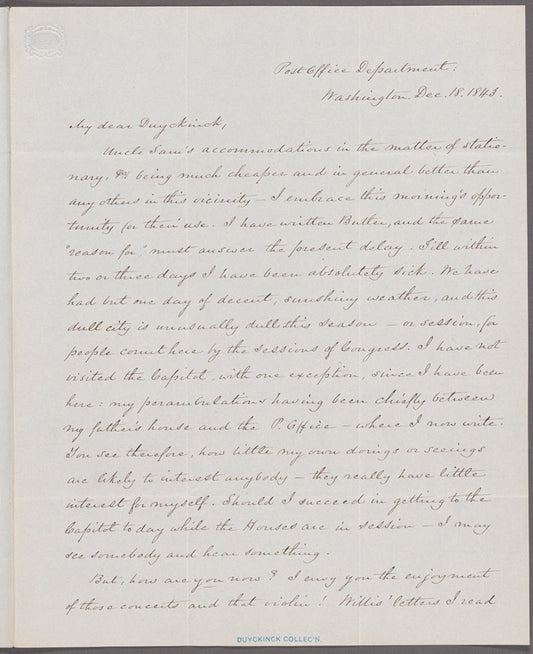 Post Office Department:
Washington. Dec. 18. 1843.
My dear Duyckinck,
Uncle Sam's accommodations in the matter of statio-
nary, &c, being much cheaper and in general better than
any others in this vicinity — I embrace this morning's oppor-
tunity for their use. I have written Butler, and the same
"reason for," must answer the present delay. Till within
two or three days I have been absolutely sick. We have
had but one day of decent, sunshiny weather, and this
dull city is unusually dull this season — or session, for
people count here by the sessions of Congress. I have not
visited the Capitol, with one exception, since I have been
here: my perambulations having been chiefly between
my father's house and the P. Office — where I now write.
You see therefore, how little my own doings or seeings
are likely to interest anybody — they really have little
interest for myself. Should I succeed in getting to the
Capitol to day while the Houses are in session — I may
see somebody and hear something.
But, how are you now? I envy you the enjoyment
of those concerts and that violin! Willis' letters I read
DUYCKINCK COLLEC'N.